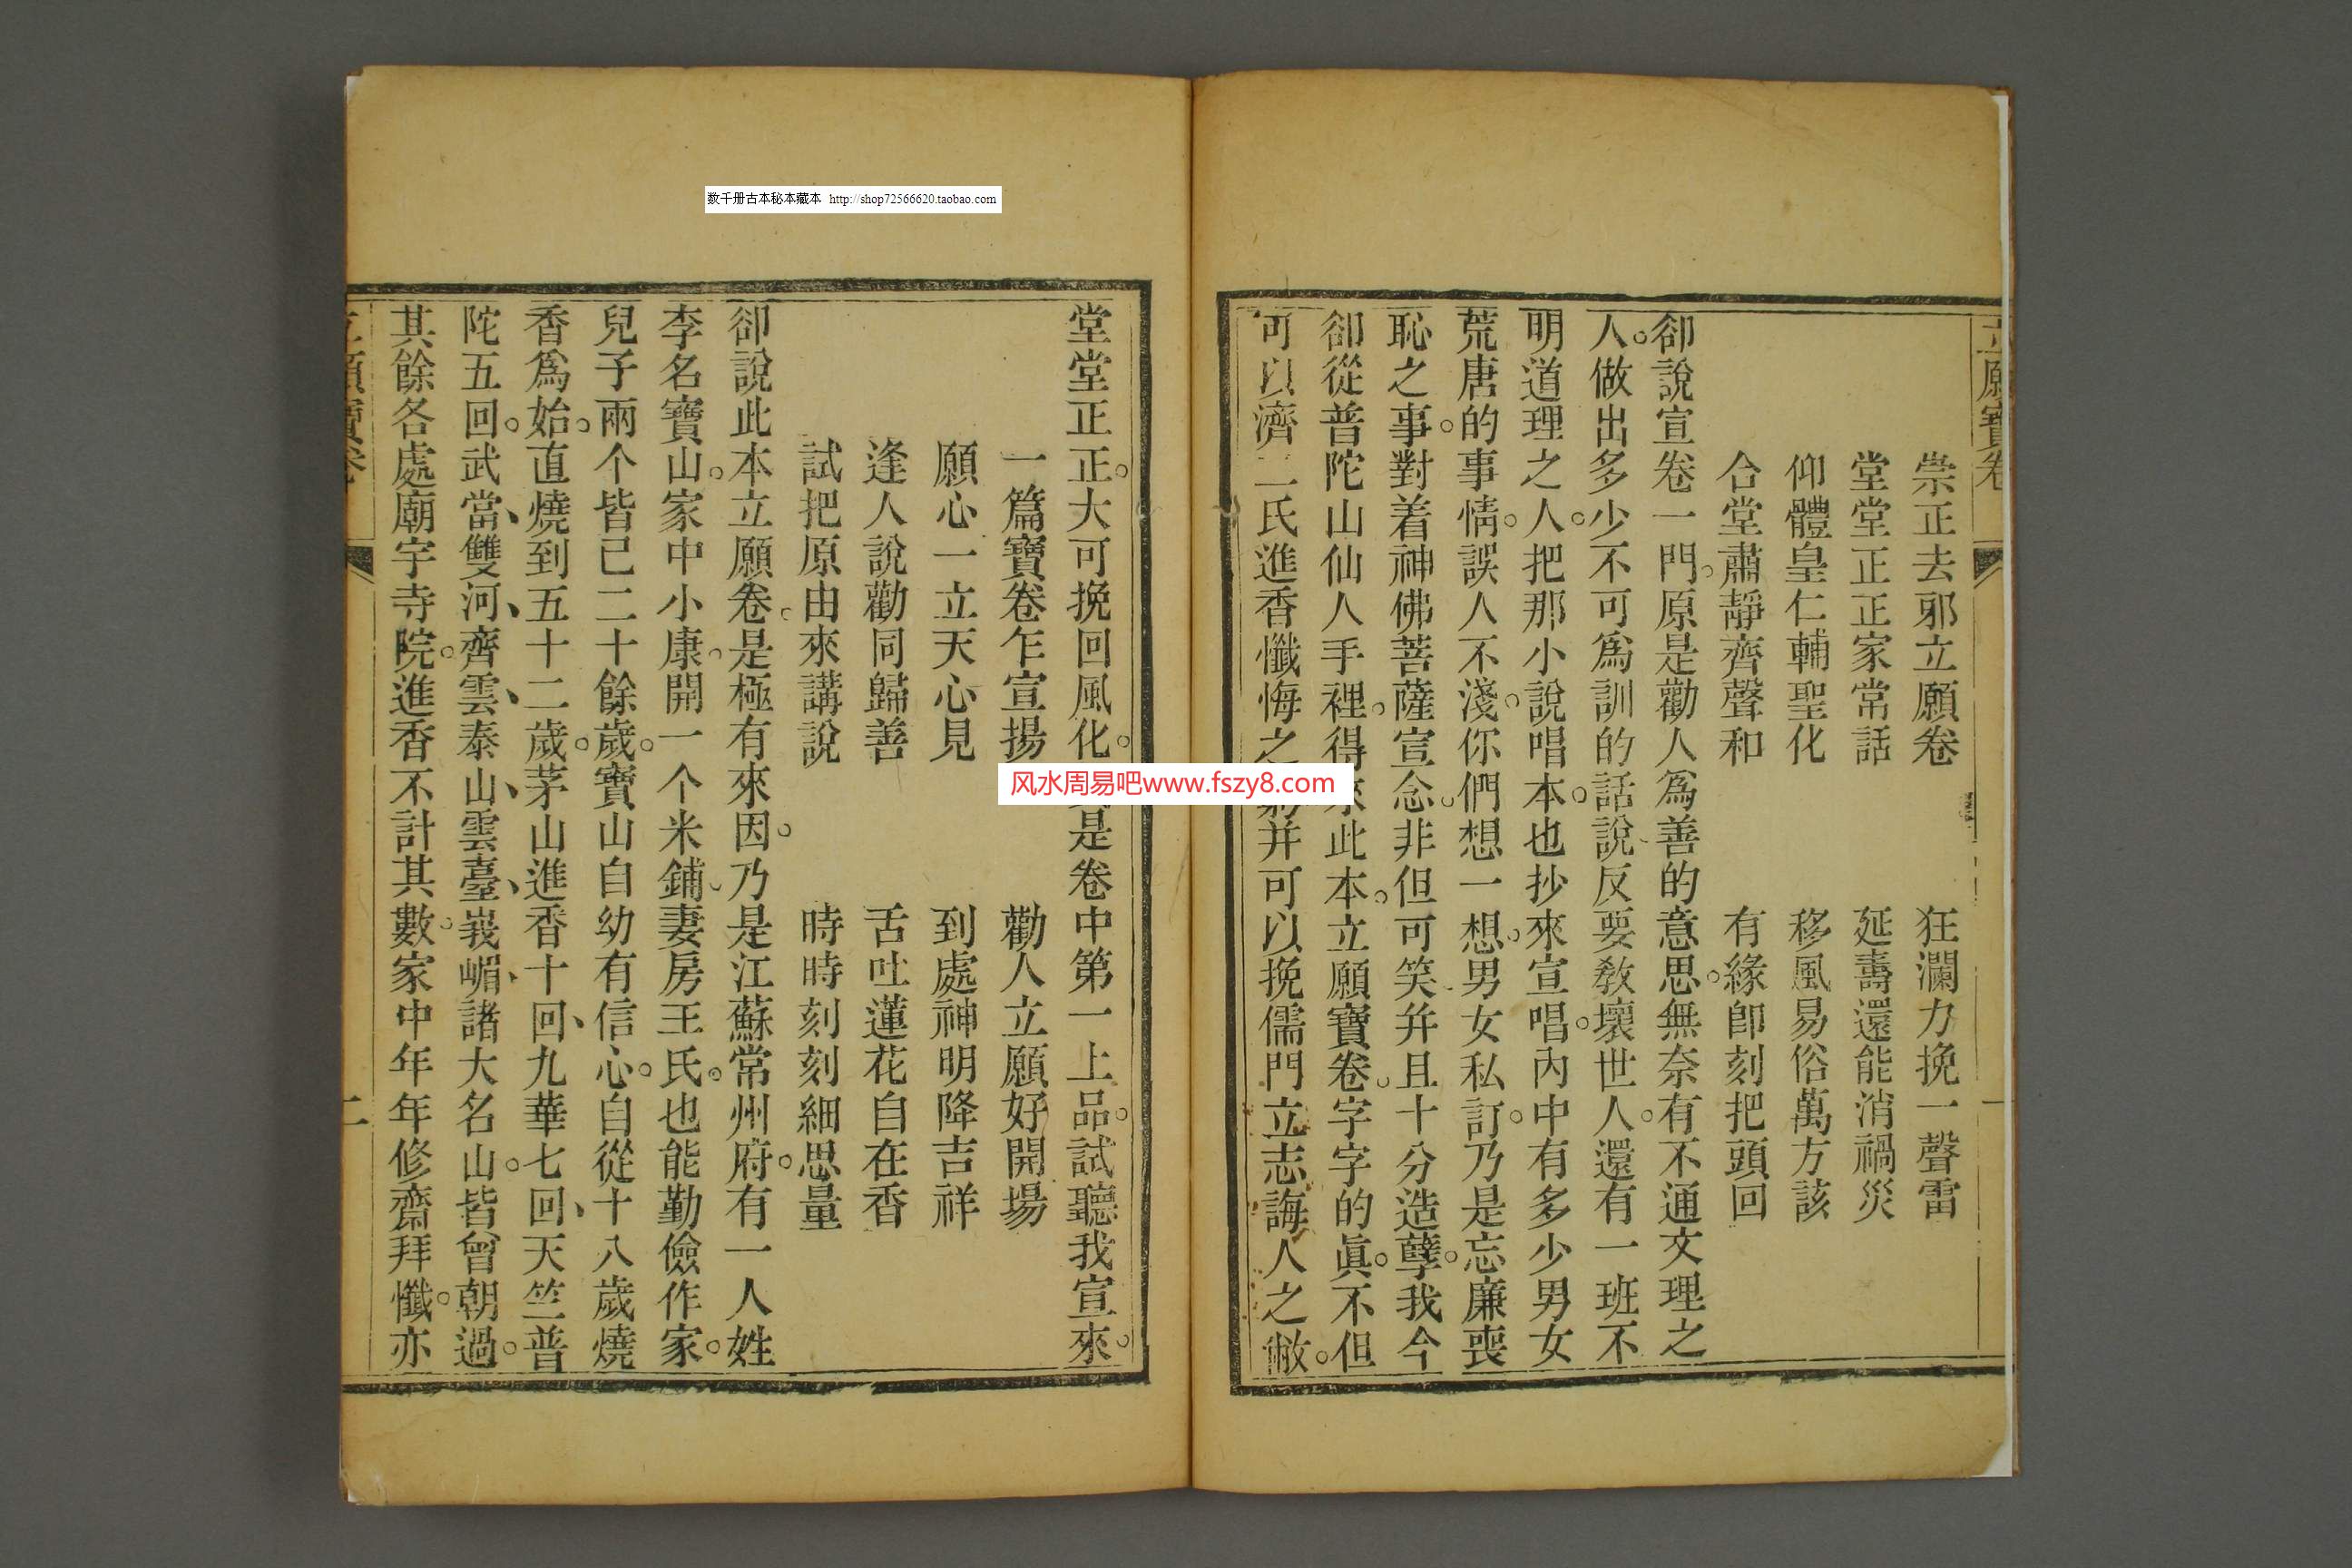 数千册古本秘本藏本 http://shop72566620.taobao.com
立願寶卷
崇正去邪立願卷 狂瀾力挽一聲雷
堂堂正正家常話 延壽還能消禍災
仰體皇仁輔聖化 移風易俗萬方該
合堂肅靜齊聲和 有緣卽刻把頭回
卻說宣卷一門。原是勸人爲善的意思。無奈有不通文理之
人。做出多少不可爲訓的話說。反要敎壞世人。還有一班不
明道理之人。把那小說唱本。也抄來宣唱。內中有多少男女
荒唐的事情。誤人不淺。你們想一想。男女私訂。乃是忘廉喪
恥之事。對着神佛菩薩宣念。非但可笑。幷且十分造孽。我今
卻從普陀山仙人手裡。得來此本。立願寶卷。字字的眞。不但
可以濟二氏進香懺悔之窮。并可以挽儒門立志誨人之敝。
风水周易吧www.fszy8.com
堂堂正正。大可挽回風化。是卷中第一上品。試聽我宣來。
一篇寶卷乍宣揚 勸人立願好開場
願心一立天心見 到處神明降吉祥
逢人說勸同歸善 舌吐蓮花自在香
試把原由來講說 時時刻刻細思量
卻說此本立願卷。是極有來因。乃是江蘇常州府。有一人姓
李名寶山。家中小康。開一个米鋪。妻房王氏。也能勤儉作家。
兒子兩个皆已二十餘歲。寶山自幼有信心。自從十八歲燒
香爲始。直燒到五十二歲。茅山進香十回、九華七回、天竺普
陀五回。武當、雙河、齊雲、泰山、雲臺、峩嵋、諸大名山。皆曾朝過。
其餘各處廟宇寺院。進香不計其數。家中年年修齋拜懺。亦
立願寶卷
二